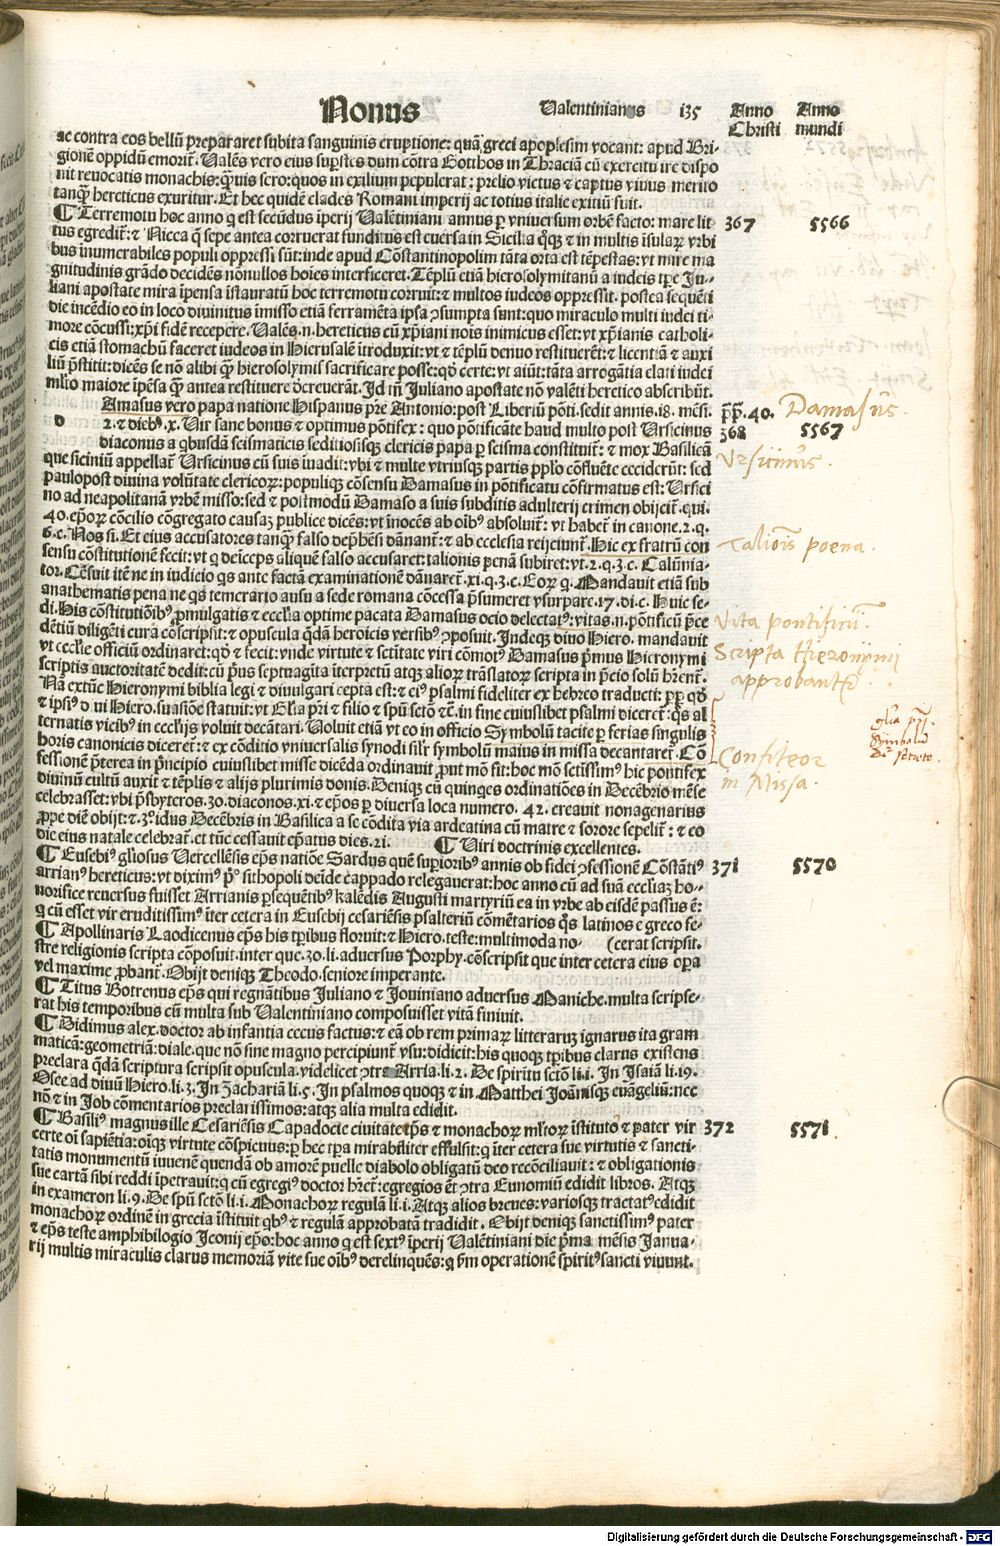 Nonus Valentinianus 135 Anno Christi Anno mundi
ac contra eos bellũ prepararet subita sanguinis eruptione: quã greci apoplesim vocant: apud Bri-
gionẽ oppidũ emorit̃. Ualẽs vero eius supstes dum cõtra Gotthos in Thraciã cũ exercitu ire dispo
nit revocatis monachis: q̃uis sero: quos in exilium pepulerat: prelio victus & captus vivus merito
tanq̃ hereticus exuritur. Et hec quidẽ clades Romani imperij ac totius italie exitiũ fuit.
¶ Terremotu hoc anno q est secũdus ĩperij Ualẽtiniani annus per vniversum orbẽ facto: mare lit 367 5566
tus egredit̃: & Nicca q̃ sepe antea corruerat funditus est eversa in Sicilia q̃q̃ & in multis ĩsulaꝝ vrbi
bus innumerabiles populi oppressi sũt: inde apud Cõstantinopolim tãta orta est tẽpestas: vt mire ma
gnitudinis grãdo decidẽs nõnullos hoies interficeret. Tẽplũ etiã hierosolymitanũ a iudeis tp̃e Ju-
liani apostate mira ĩpensa ĩstauratũ hoc terremotu corruit: & multos iudeos oppressit. postea sequẽti
die incẽdio eo in loco divinitus ĩmisso etiã ferramẽta ipsa ꝯsumpta sunt: quo miraculo multi iudei ti-
more cõcussi: xp̃i fidẽ recepere. Ualẽs .n. hereticus cũ xp̃iani nois inimicus esset: vt xp̃ianis catholi-
cis etiã stomachũ faceret iudeos in Hierusalẽ ĩtroduxit: vt & tẽplũ denuo restituerẽt: & licentiã & auxi
liũ p̃stitit: dicẽs se nõ alibi q̃ hierosolymis sacrificare posse: qõ certe: vt aiũt: tãta arrogãtia elati iudei
ml̃to maiore ĩpẽsa q̃ antea restituere decreverãt. Id tñ Juliano apostate nõ valẽti heretico ascribũt.
d Amasus vero papa natione Hispanus pr̃e Antonio: post Liberiũ põti. sedit annis. 18. mẽsi. p̃p̃. 40. Damasus.
2. & dieb⁹. x. Uir sane bonus & optimus põtifex: quo põtificãte haud multo post Ursicinus 368 5567
diaconus a qbusdã scismaticis seditiosisq̃ clericis papa p̃ scisma constituit̃: & mox Basilicã Ursicinus.
que siciniũ appellat̃ Ursicinus cũ suis invadit: vbi & multe vtriusq̃ partis pplo cõfluẽte cecideruñt: sed
paulopost divina volũtate clericoꝝ: populiq̃ cõsensu Damasus in põtificatu cõfirmatus est: Ursici
no ad neapolitanã vrbẽ misso: sed & postmodũ Damaso a suis subditis adulterij crimen obijcit̃. qui.
40. ep̃oꝝ cõcilio cõgregato causaʒ publice dicẽs: vt ĩnocẽs ab oĩb⁹ absoluit̃: vt habet̃ in canone. 2. q.
6. c. Nos si. Et eius accusatores tanq̃ falso dep̃hẽsi dãnant̃: & ab ecclesia reijciunt̃. Hic ex fratrũ con Talionis poena.
sensu cõstitutionẽ fecit: vt q deĩceps aliquẽ falso accusaret: talionis penã subiret: vt. 2. q. 3. c. Calũnia-
tor. Cẽsuit itẽ ne in iudicio qs ante factã examinationẽ dãnaret̃. xi. q. 3. c. Eoꝝ q. Mandavit etiã sub
anathematis pena ne qs temerario ausu a sede romana cõcessa p̃sumeret vsurpare. 17. di. c. Huic se-
di. His cõstitutiõib⁹ p̃mulgatis & ecclĩa optime pacata Damasus ocio delectat⁹: vitas .n. põtificũ p̃ce Vita pontificũ.
dẽtiũ diligẽti cura cõscripsit: & opuscula q̃dã heroicis versib⁹ ꝯposuit. Indeq̃ divo Hiero. mandavit
vt ecclie officiũ ordinaret: qõ & fecit: vnde virtute & sctitate viri cõmot⁹ Damasus p̃mus Hieronymi Scripta Hieronymi
scriptis auctoritatẽ dedit: cũ p̃us septuagĩta ĩterpretũ atq̃ alioꝝ trãslatoꝝ scripta in p̃cio solũ hr̃ent. approbantur.
Nã extũc Hieronymi biblia legi & divulgari cepta est: & ei⁹ psalmi fideliter ex hebreo traducti: pp̃ qõ
& ipsi⁹ d vi Hiero. suasiõe statuit: vt Glĩa p̃ri & filio & spũ sctõ &c̃. in fine cuiuslibet psalmi diceret̃: q̃s al glia pr̃i.
ternatis vicib⁹ in ecclĩjs voluit decãtari. Voluit etiã vt eo in officio Symbolũ tacite p ferias singulis Symbolũ
horis canonicis diceret̃: & ex cõditio vniversalis synodi silr̃ symbolũ maius in missa decantaret̃. Cõ Confiteor
fessionẽ p̃terea in p̃ncipio cuiuslibet misse dicẽda ordinavit prout mõ fit: hoc mõ sctissim⁹ hic pontifex in Missa.
divinũ cultũ auxit & tẽplis & alijs plurimis donis. Deniq̃ cũ quinqes ordinatiões in Decẽbrio mẽse
celebrasset: vbi p̃sbyteros. 30. diaconos. xi. & ep̃os p diversa loca numero. 42. creavit nonagenarius
ꝓpe diẽ obijt: & 3º. idus Decẽbris in Basilica a se cõdita via ardeatina cũ matre & sorore sepelit̃: & eo
die eius natale celebrat̃. et tũc cessavit ep̃atus dies. 21. ¶ Uiri doctrinis excellentes.
¶ Eusebi⁹ gl̃iosus Uercellẽsis ep̃s natiõe Sardus quẽ superiorib⁹ annis ob fidei ꝯfessionẽ Cõstãti⁹ 371 5570
arrian⁹ hereticus: vt dixim⁹ p⁹. sithopoli deĩde cappado relegaverat: hoc anno cũ ad suã eccliaʒ ho-
norifice reversus fuisset Arrianis p̃sequẽtib⁹ kalẽdis Augusti martyriũ ea in vrbe ab eisdẽ passus ẽ:
q cũ esset vir eruditissim⁹ ĩter cetera in Eusebij cesariẽsis psalteriũ cõmẽtarios q̃s latinos e greco fe-
¶ Apollinaris Laodicenus ep̃s his tp̃ibus floruit: & Hiero. teste: multimoda no- (cerat scripsit.
stre religionis scripta cõposuit. inter que. 30. li. adversus Porphy. cõscripsit que inter cetera eius oꝑa
vel maxime ꝓbant̃. Obijt deniq̃ Theodo. seniore imperante.
¶ Titus Botrenus ep̃s qui regnãtibus Juliano & Joviniano adversus Maniche. multa scripse-
rat his temporibus cũ multa sub Valentiniano composuisset vitã finivit.
¶ Didimus alex. doctor ab infantia cecus factus: & eã ob rem primaꝝ litterarũ ignarus ita gram
maticã: geometriã: diale. que nõ sine magno percipiunt̃ vsu: didicit: his quoq̃ tp̃ibus clarus existens
preclara q̃dã scriptura scripsit opuscula. videlicet ꝯtra Arria. li. 2. De spiritu sctõ li. i. In Isaiã li. 19.
Osee ad divũ Hiero. li. 3. In Zachariã li. 5. In psalmos quoq̃ & in Matthei Joãnisq̃ evãgeliũ: nec
nõ & in Job cõmentarios preclarissimos: atq̃ alia multa edidit.
¶ Basili⁹ magnus ille Cesariẽsis Capadocie civitate ep̃s & monachoꝝ ml̃toꝝ ĩstituto⁹ & pater vir 372 5571
certe oĩ sapiẽtia: oĩq̃ virtute cõspicuus: p hec tp̃a mirabiliter effulsit: q ĩter cetera sue virtutis & sancti-
tatis monumentũ iuvenẽ quendã ob amorẽ puelle diabolo obligatũ deo recõciliavit: & obligationis
sue cartã sibi reddi ĩpetravit: q cũ egregi⁹ doctor hr̃et: egregios ẽt ꝯtra Eunomiũ edidit libros. Atq̃
in exameron li. 9. De spũ sctõ li. i. Monachoꝝ regulã li. i. Atq̃ alios breves: variosq̃ tractat⁹ edidit
monachoꝝ ordinẽ in grecia ĩstituit qb⁹ & regulã approbatã tradidit. Obijt deniq̃ sanctissim⁹ pater
& ep̃s teste amphibilogio Iconij ep̃o: hoc anno q est sext⁹ ĩperij Ualẽtiniani die p̃ma mẽsis Janua-
rij multis miraculis clarus memoriã vite sue oĩb⁹ derelinquẽs: q ṽm operationẽ spirit⁹ sancti vivunt.
Digitalisierung gefördert durch die Deutsche Forschungsgemeinschaft - DFG